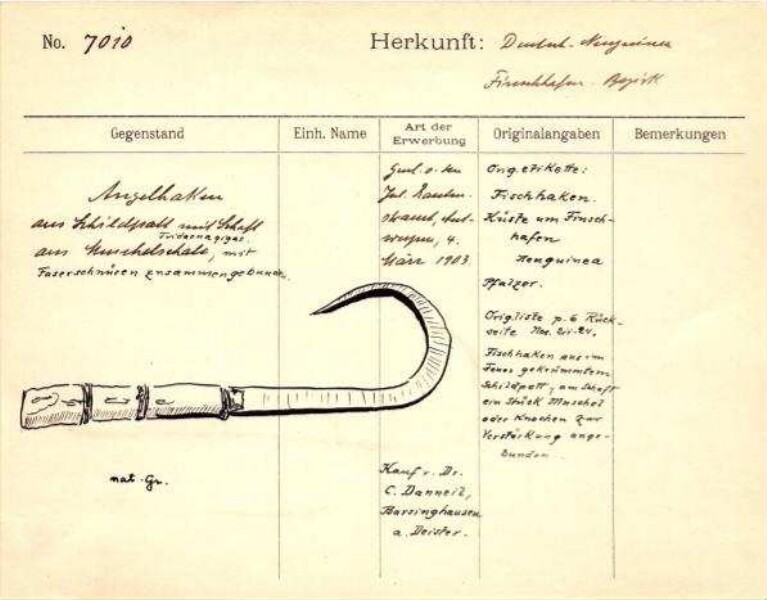 No. 7010
Herkunft: Deutsch-Neuguinea
Finschhafen-Bezirk
Gegenstand
Einh. Name
Art der
Erwerbung
Originalangaben
Bemerkungen
Angelhaken
aus Schildpatt mit Schaft
Tridacna gigas
aus Muschelschale, mit
Faserschnüren zusammengebunden.
März 1903.
Kauf v. Dr.
C. Danneil,
Barsinghausen
a. Deister.
Orig. etikette:
Fischhaken.
Küste um Finsch-
hafen
Neuguinea
Pfalzer.
Orig. liste p. 6 Rück-
seite Nos. 211-24.
Fischhaken aus im
Feuer gekrümmtem
Schildpatt, am Schaft
ein Stück Muschel
oder Knochen zur
Verstärkung ange-
bunden
nat. Gr.